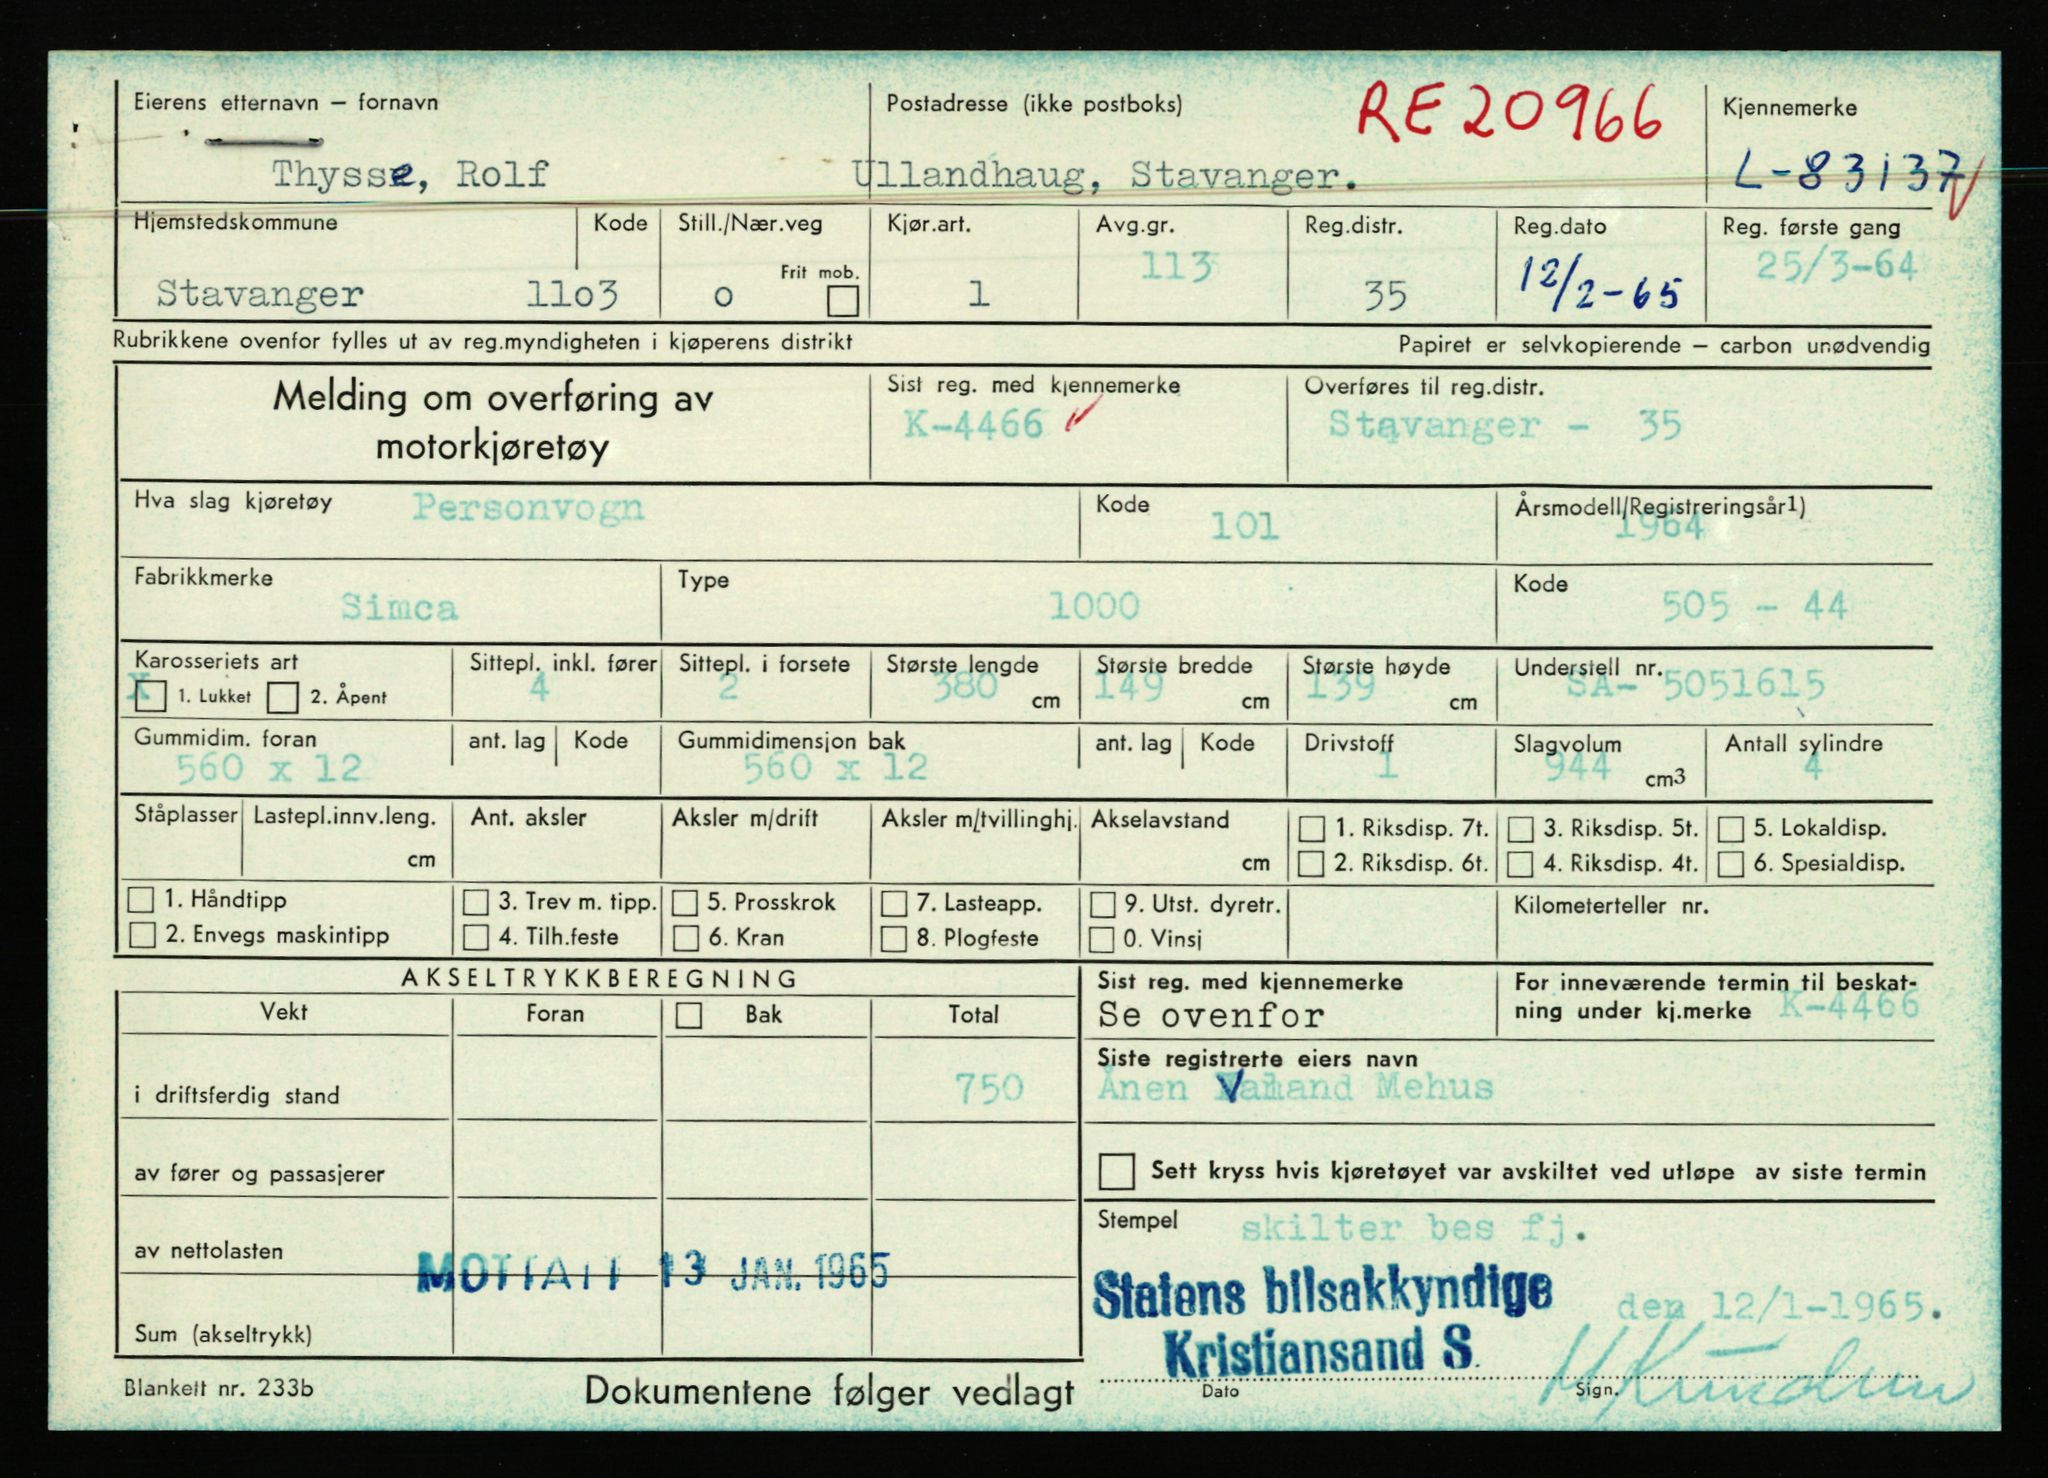 Eierens etternavn – fornavn Postadresse (ikke postboks) RE 20966 Kjennemerke
Thysse, Rolf Ullandhaug, Stavanger. L-83137
Hjemstedskommune Kode Still./Nær.veg Kjør.art. Avg.gr. Reg.distr. Reg.dato Reg. første gang
Frit mob.
Stavanger 11o3 o 1 113 35 12/2-65 25/3-64
Rubrikkene ovenfor fylles ut av reg.myndigheten i kjøperens distrikt Papiret er selvkopierende – carbon unødvendig
Melding om overføring av
motorkjøretøy
Sist reg. med kjennemerke Overføres til reg.distr.
K-4466 Stavanger - 35
Hva slag kjøretøy Personvogn Kode 101 Årsmodell/Registreringsår1) 1964
Fabrikkmerke Type Kode
Simca 1000 505 - 44
Karosseriets art Sittepl. inkl. fører Sittepl. i forsete Største lengde Største bredde Største høyde Understell nr.
X 1. Lukket 2. Åpent 4 2 380 cm 149 cm 139 cm SA- 5051615
Gummidim. foran ant. lag Kode Gummidimensjon bak ant. lag Kode Drivstoff Slagvolum Antall sylindre
560 x 12 560 x 12 1 944 cm3 4
Ståplasser Lastepl.innv.leng. Ant. aksler Aksler m/drift Aksler m/tvillinghj. Akselavstand 1. Riksdisp. 7t. 3. Riksdisp. 5t. 5. Lokaldisp.
cm cm 2. Riksdisp. 6t. 4. Riksdisp. 4t. 6. Spesialdisp.
1. Håndtipp 3. Trev m. tipp. 5. Prosskrok 7. Lasteapp. 9. Utst. dyretr. Kilometerteller nr.
2. Envegs maskintipp 4. Tilh.feste 6. Kran 8. Plogfeste 0. Vinsj
AKSELTRYKKBEREGNING
Vekt Foran Bak Total
i driftsferdig stand 750
av fører og passasjerer
av nettolasten
MOTTATT 13 JAN. 1965
Sum (akseltrykk)
Sist reg. med kjennemerke For inneværende termin til beskat-
Se ovenfor ning under kj.merke K-4466
Siste registrerte eiers navn
Ånen Mehus
Sett kryss hvis kjøretøyet var avskiltet ved utløpe av siste termin
Stempel skilter bes fj.
Statens bilsakkyndige den 12/1-1965.
Kristiansand S.
Dato Sign.
Blankett nr. 233b Dokumentene følger vedlagt